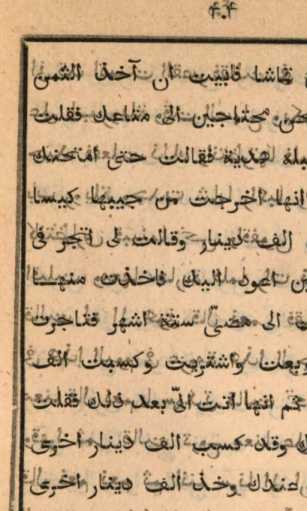 ٤٠٤
قماشا فابيت ان آخذ الثمن
محتاجين الى متاعك فقلت
هدية فقالت حتى امتحنك
انها اخرجت من جيبها كيسا
الف دينار وقالت لى اتجر فى
اعود اليك فاخذت منها
الى مضىّ ستة اشهر فتاجرت
وبعت واشتريت وكسبت الف
ثم انها اتت الىّ بعد ذلك فقلت
وقد كسبت الف دينار اخرى
عندك وخذ الف دينار اخرى